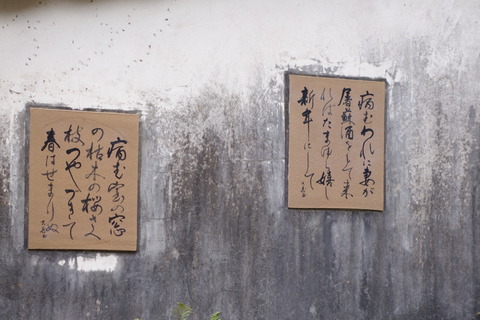 病むわれに妻が
屠蘇酒をもて来
ればたまゆら嬉し
新年にして
病む室の窓
の枯木の桜さへ
枝つやつきて
春はせまりぬ